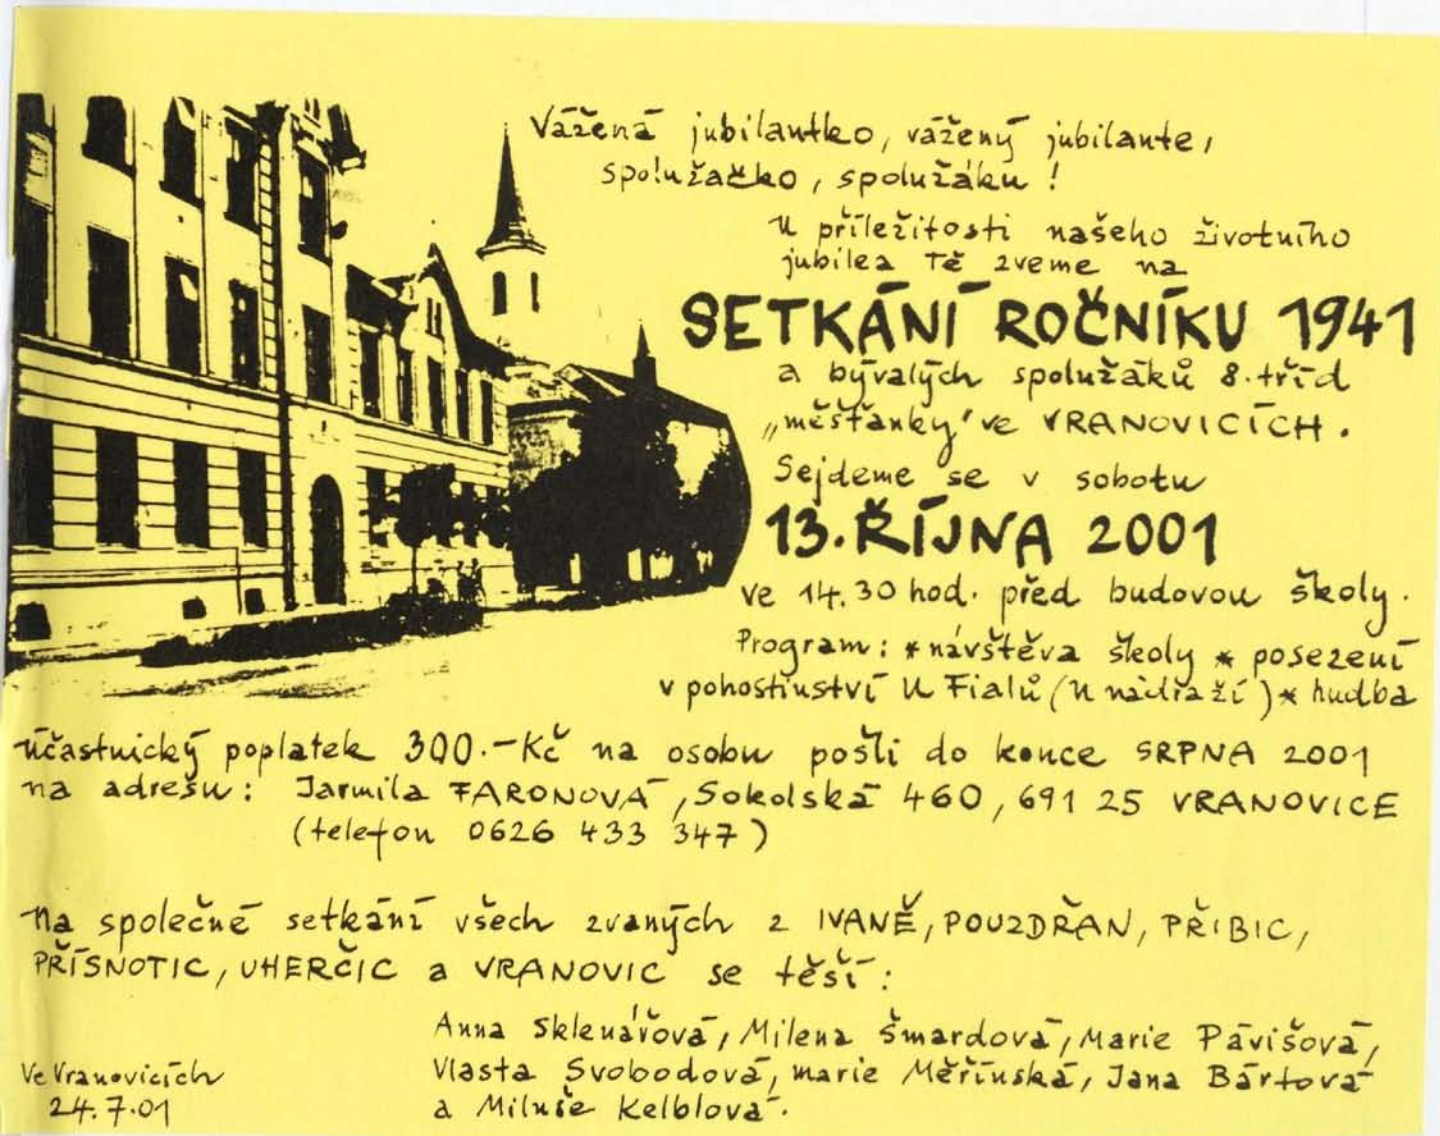 Vážená jubilantko, vážený jubilante,
spolužačko, spolužáku!
U příležitosti našeho životního
jubilea Tě zveme na
SETKÁNÍ ROČNÍKU 1941
a bývalých spolužáků 8. tříd
„měšťanky" ve VRANOVICÍCH.
Sejdeme se v sobotu
13. ŘÍJNA 2001
ve 14.30 hod. před budovou školy.
Program: * návštěva školy * posezení
v pohostinství U Fialů (u nádraží) * hudba
účastnický poplatek 300.-Kč na osobu pošli do konce SRPNA 2001
na adresu: Jarmila FARONOVÁ, Sokolská 460, 691 25 VRANOVICE
(telefon 0626 433 347)
Na společné setkání všech zvaných z IVANĚ, POUZDŘAN, PŘIBIC,
PŘÍSNOTIC, UHERČIC a VRANOVIC se těší:
Anna Sklenářová, Milena Šmardová, Marie Pávišová,
Vlasta Svobodová, Marie Měřínská, Jana Bártová
a Miluše Kelblová.
Ve Vranovicích
24.7.01